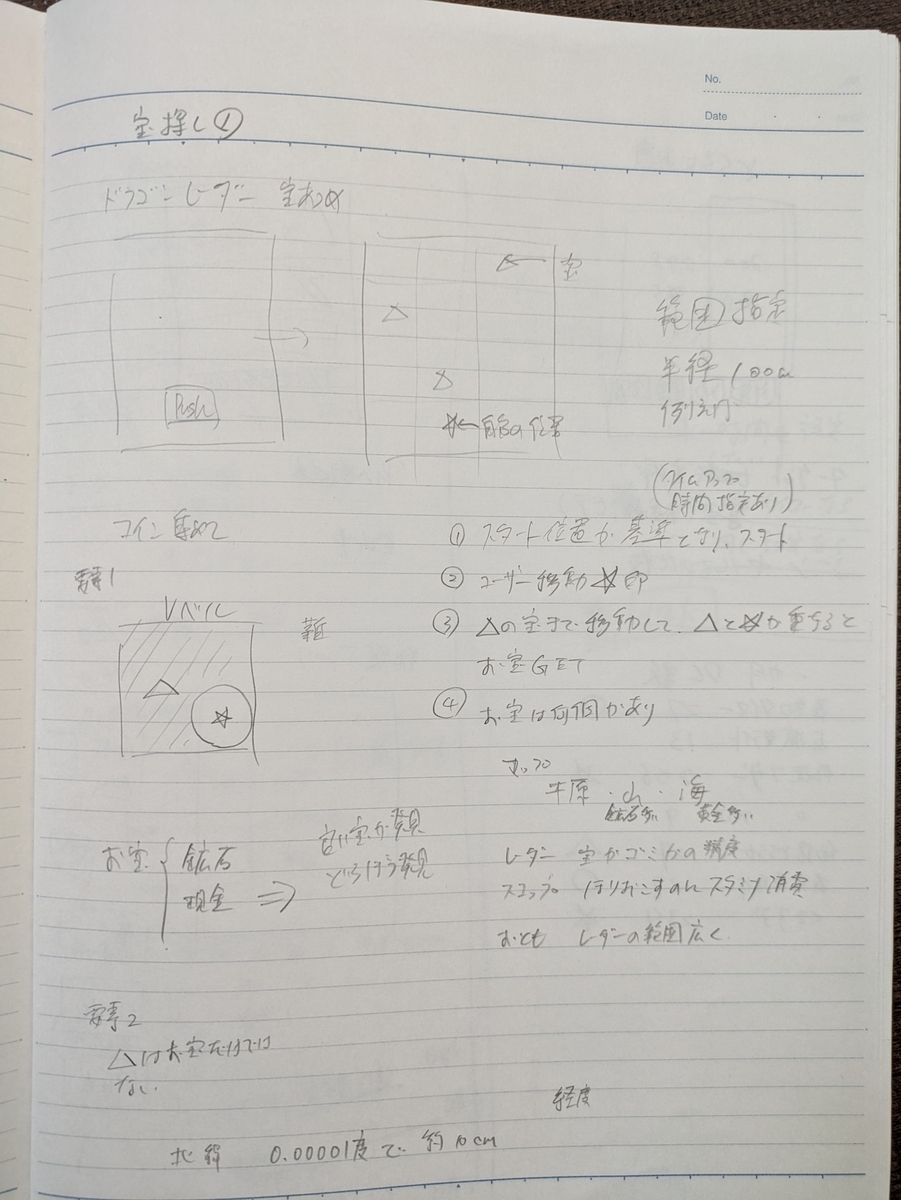 No.
Date
宝探し①
ドラゴンレーダー 宝あつめ
宝
Push
自分の位置
範囲指定
半径100m
(タイムアップ
時間指定あり)
コイン集めて
① スタート位置が基準となり、スタート
② ユーザー移動☆印
③ △の宝まで移動して、△と☆が重なると
お宝GET
④ お宝は何個かあり
レベル
マップ
平原・山・海
鉱石多い 黄金多い
お宝 鉱石
現金 ⇒
宝が発見
レーダー 宝かゴミかの精度
スコップ ほりおこすのにスタミナ消費
おとも レーダーの範囲広く
2
△はお宝だけでは
ない
経度
北緯 0.00001度で 約10cm